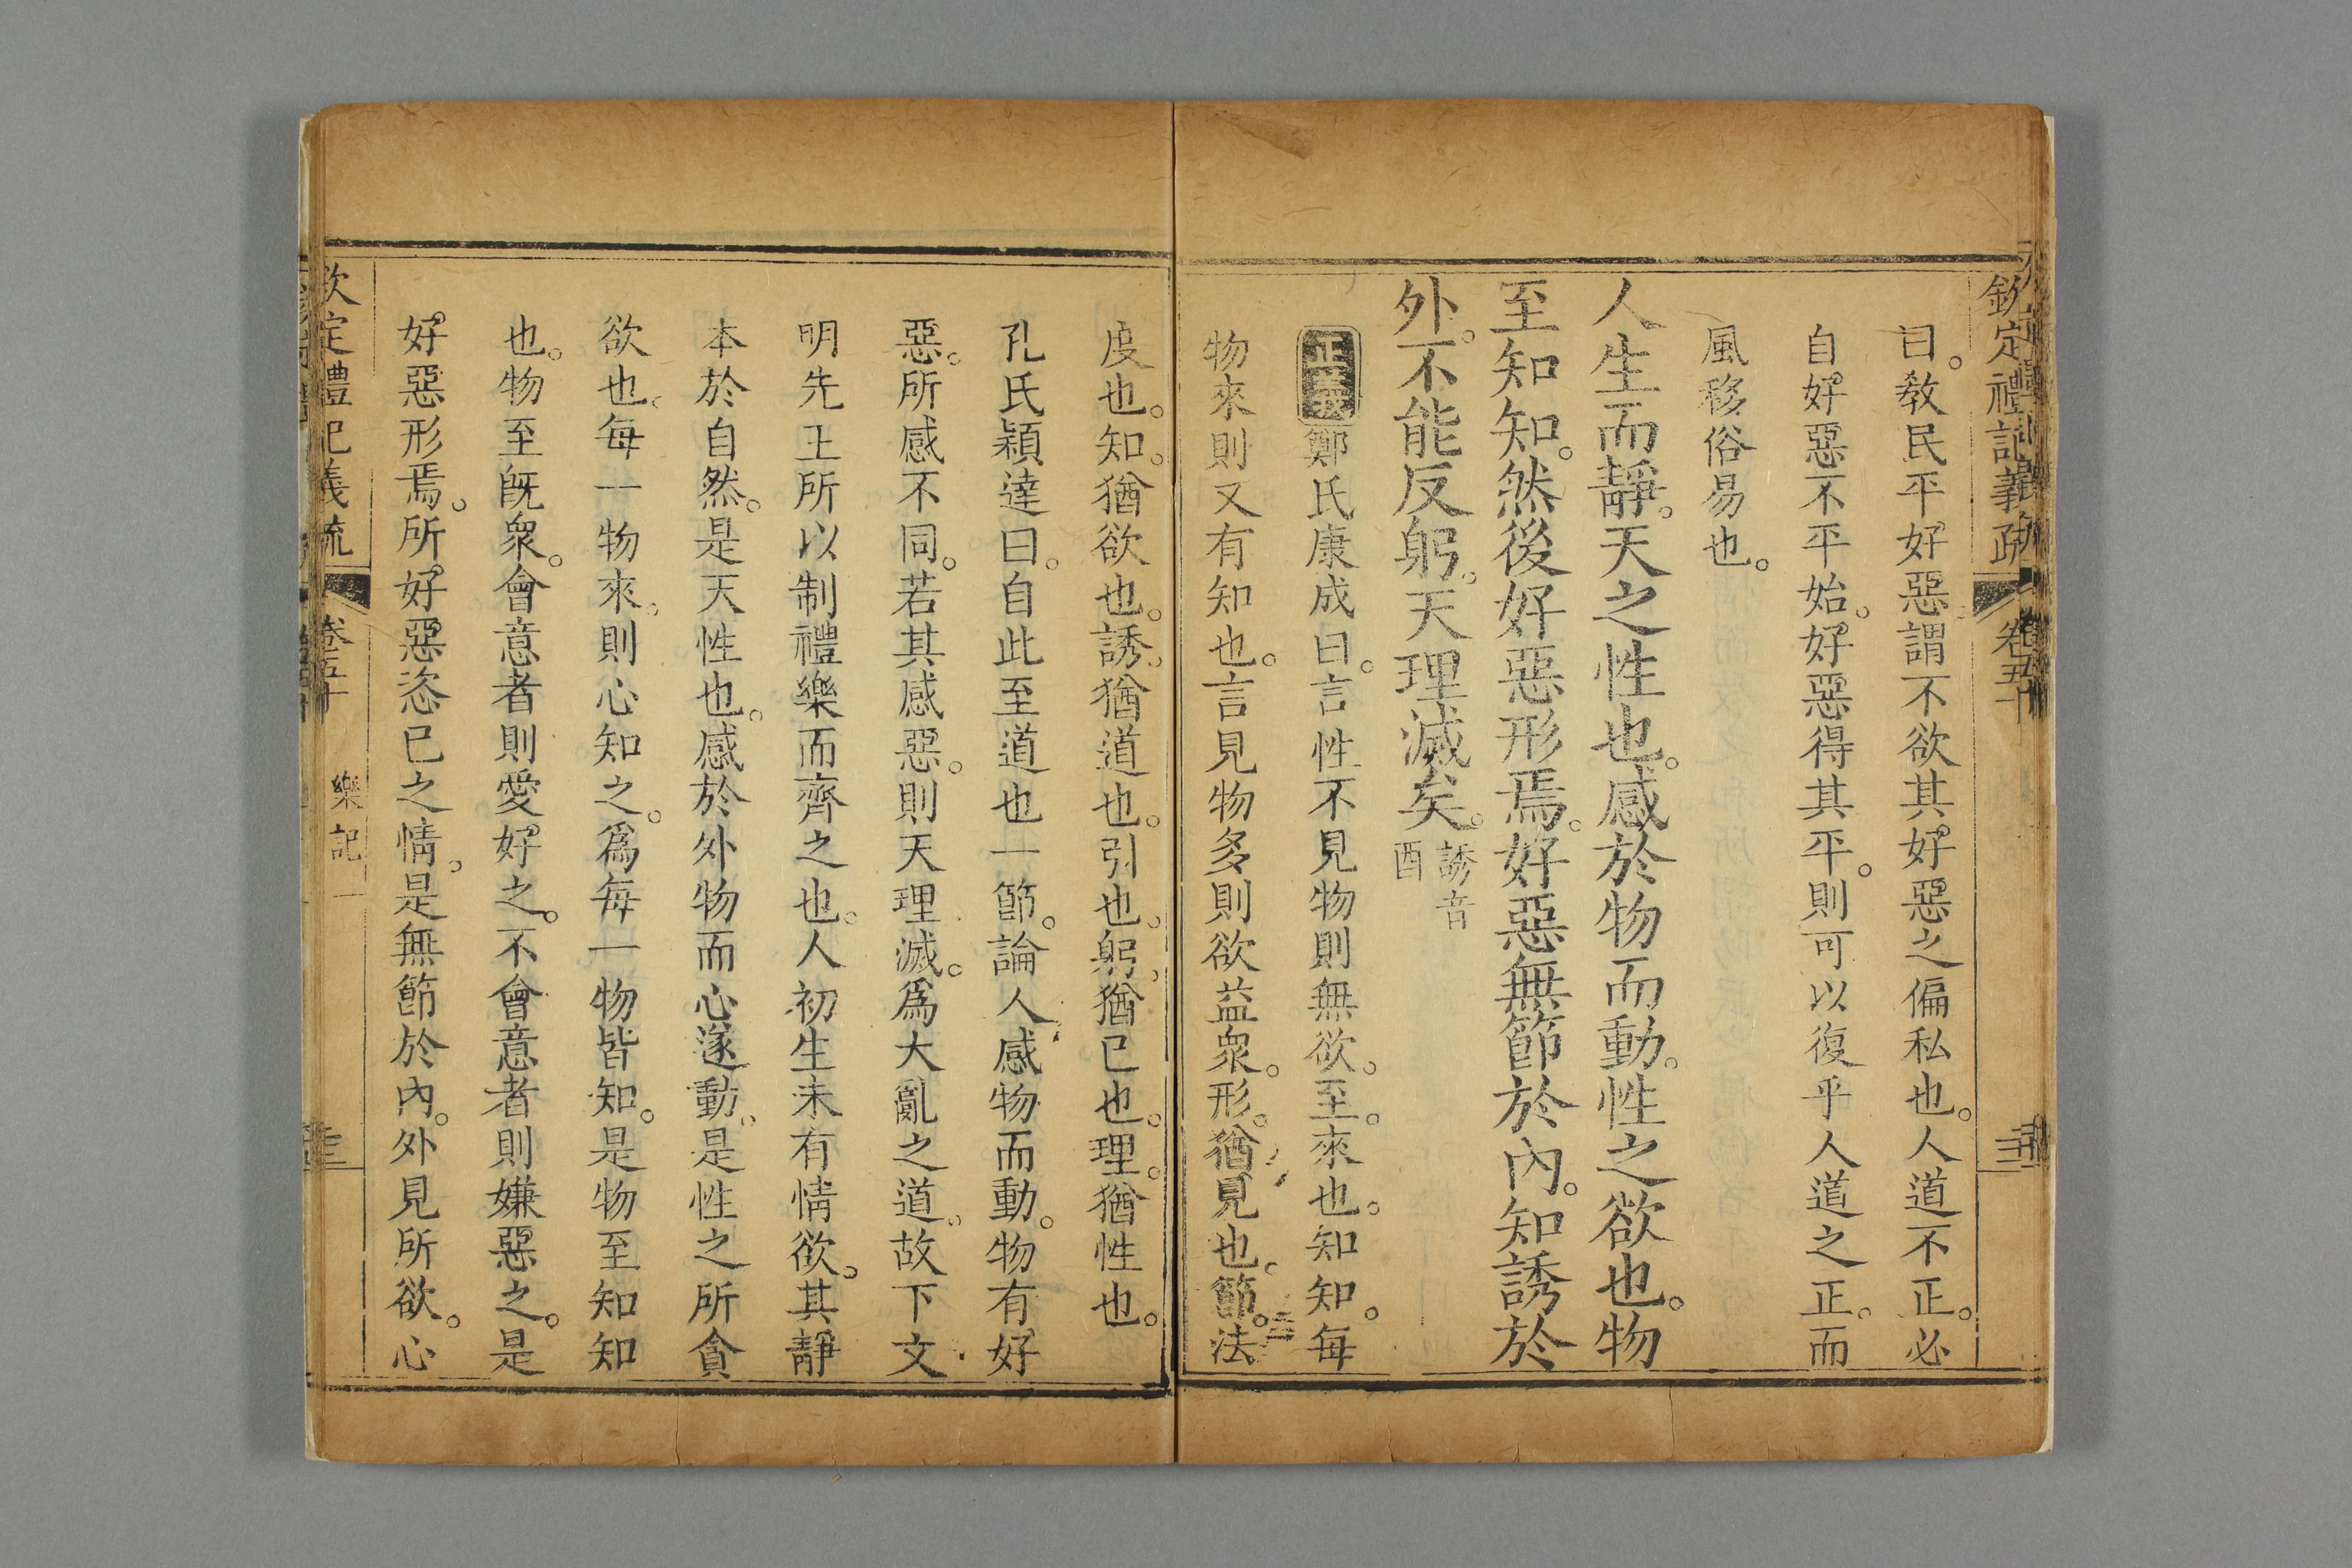 欽定禮記義疏 卷五十
曰。敎民平好惡謂不欲其好惡之偏私也。人道不正。必
自好惡不平始。好惡得其平。則可以復乎人道之正。而
風移俗易也。
人生而靜。天之性也。感於物而動。性之欲也。物
至知知。然後好惡形焉。好惡無節於內。知誘於
外。不能反躬。天理滅矣。誘音酉
正義鄭氏康成曰。言性不見物則無欲。至。來也。知知。每
物來則又有知也。言見物多則欲益衆。形。猶見也。節。法
度也。知。猶欲也。誘。猶道也。引也。躬。猶己也。理。猶性也。
孔氏穎達曰。自此至道也一節。論人感物而動。物有好
惡。所感不同。若其感惡。則天理滅。爲大亂之道。故下文
明先王所以制禮樂而齊之也。人初生未有情欲。其靜
本於自然。是天性也。感於外物而心遂動。是性之所貪
欲也。每一物來。則心知之。爲每一物皆知。是物至知知
也。物至旣衆。會意者則愛好之。不會意者則嫌惡之。是
好惡形焉。所好惡恣己之情。是無節於內。外見所欲。心
欽定禮記義疏 卷五十 樂記